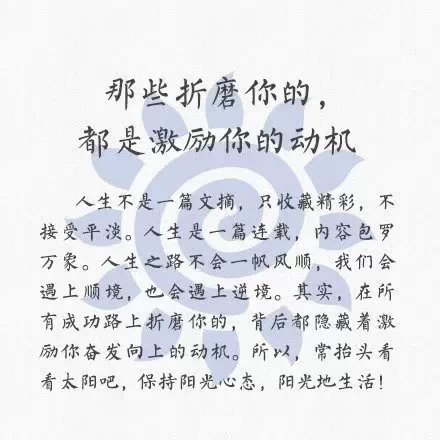 那些折磨你的，
都是激励你的动机
人生不是一篇文摘，只收藏精彩，不
接受平淡。人生是一篇连载，内容包罗
万象。人生之路不会一帆风顺，我们会
遇上顺境，也会遇上逆境。其实，在所
有成功路上折磨你的，背后都隐藏着激
励你奋发向上的动机。所以，常抬头看
看太阳吧，保持阳光心态，阳光地生活！